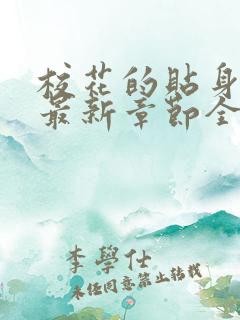 校花的貼身
最新章節全
李學仕
未經同意禁止轉載